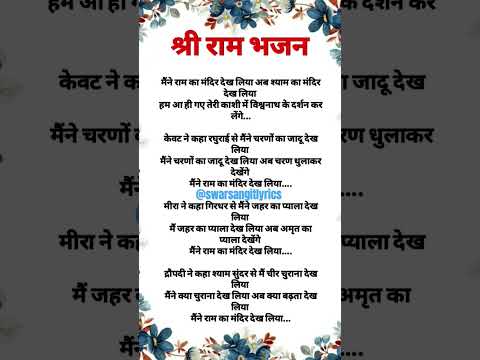 श्री राम भजन
मैंने राम का मंदिर देख लिया अब श्याम का मंदिर
देख लिया
हम आ ही गए तेरी काशी में विश्वनाथ के दर्शन कर
लेंगे...
केवट ने कहा रघुराई से मैंने चरणों का जादू देख
लिया
मैंने चरणों का जादू देख लिया अब चरण धुलाकर
देखेंगे
मैंने राम का मंदिर देख लिया....
@swarsangitlyrics
मीरा ने कहा गिरधर से मैंने जहर का प्याला देख
लिया
मैं जहर का प्याला देख लिया अब अमृत का
प्याला देखेंगे
मैंने राम का मंदिर देख लिया....
द्रौपदी ने कहा श्याम सुंदर से मैं चीर चुराना देख
लिया
मैंने क्या चुराना देख लिया अब क्या बढ़ता देख
लिया
मैंने राम का मंदिर देख लिया...